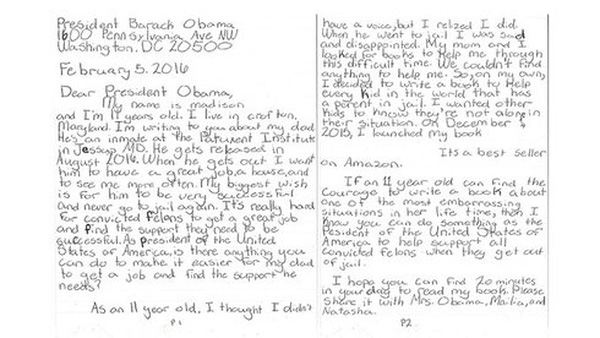 President Barack Obama
1600 Pennsylvania Ave NW
Washington, DC 20500
February 5, 2016
Dear President Obama,
My name is madison
and I'm 11 years old. I live in crofton,
Maryland. I'm writing to you about my dad
He's an inmate at the Patuxent Institute
in Jessup MD. He gets released in
August 2016. When he gets out I want
him to have a great job, a house, and
to see me more often. My biggest wish
is for him to be very successful
and never go to jail again. It's really hard
for convicted felons to get a great job
and find the support they need to be
successful. As president of the United
States of America, is there anything you
can do to make it easier for my dad
to get a job and find the support he
needs?
As an 11 year old, I thought I didn't
P1
have a voice, but I relized I did.
When he went to jail I was sad
and disappointed. My mom and I
looked for books to help me through
this difficult time. We couldn't find
anything to help me. So, on my own,
I decided to write a book to help
every kid in the world that has
a parent in jail. I wanted other
kids to know they're not alone in
their situation. On December 4,
2015, I launched my book
Its a best seller
on Amazon.
If an 11 year old can find the
courage to write a book about
one of the most embarrassing
situations in her life time, then I
know you can do something as the
President of the United States of
America to help support all
convicted felons when they get out
of jail.
I hope you can find 20 minutes
in your day to read my book. Please
share it with Mrs. Obama, Malia, and
Natasha.
P2